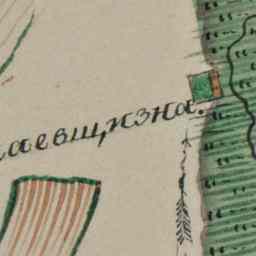 аевщизна.